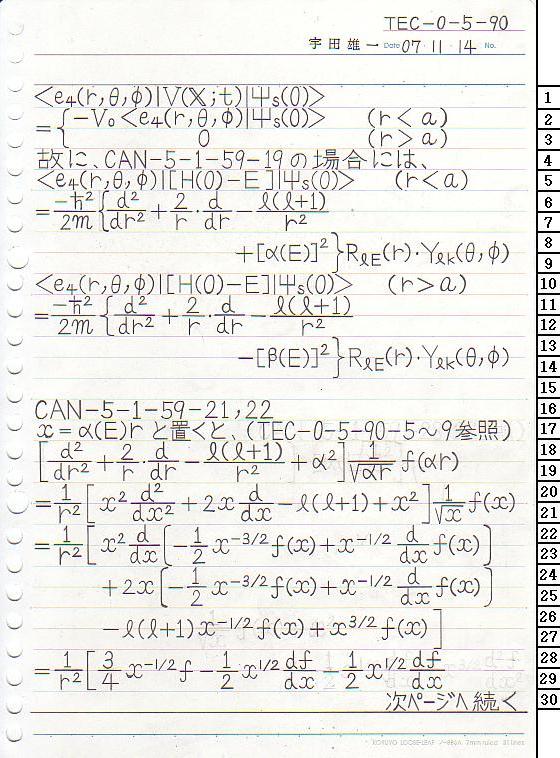 TEC-0-5-90
宇田雄一 Date 07・11・14 No.
<e₄(r,θ,φ)|V(𝕏;t)|Ψs(0)>
={ -V₀<e₄(r,θ,φ)|Ψs(0)> (r<a)
0 (r>a)
故に、CAN-5-1-59-19の場合には、
<e₄(r,θ,φ)|[H(0)-E]|Ψs(0)> (r<a)
= -ħ²/2m { d²/dr² + 2/r・d/dr - ℓ(ℓ+1)/r²
+[α(E)]² } RℓE(r)・Yℓk(θ,φ)
<e₄(r,θ,φ)|[H(0)-E]|Ψs(0)> (r>a)
= -ħ²/2m { d²/dr² + 2/r・d/dr - ℓ(ℓ+1)/r²
-[β(E)]² } RℓE(r)・Yℓk(θ,φ)
CAN-5-1-59-21,22
x=α(E)r と置くと、(TEC-0-5-90-5~9参照)
[ d²/dr² + 2/r・d/dr - ℓ(ℓ+1)/r² + α² ] 1/√αr f(αr)
= 1/r² [ x² d²/dx² + 2x d/dx - ℓ(ℓ+1) + x² ] 1/√x f(x)
= 1/r² [ x² d/dx [ -1/2 x^-3/2 f(x) + x^-1/2 d/dx f(x) ]
+ 2x [ -1/2 x^-3/2 f(x) + x^-1/2 d/dx f(x) ]
- ℓ(ℓ+1) x^-1/2 f(x) + x^3/2 f(x) ]
= 1/r² [ 3/4 x^-1/2 f - 1/2 x^1/2 df/dx - 1/2 x^1/2 df/dx
次ページへ続く
KOKUYO LOOSE-LEAF ノ-836A 7mm ruled 31 lines
1
2
3
4
5
6
7
8
9
10
11
12
13
14
15
16
17
18
19
20
21
22
23
24
25
26
27
28
29
30